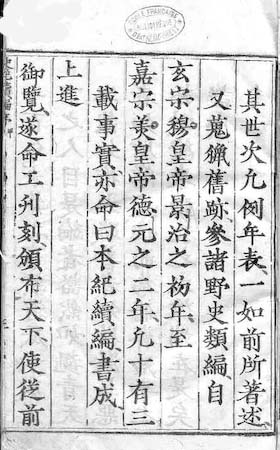 ECOLE FRANÇAISE
D'EXTREME-ORIENT
其世次凡例年表一如前所著述
又蒐獵舊跡參諸野史類編自
玄宗穆皇帝景治之初年至
嘉宗美皇帝德元之二年凡十有三
載事實亦命曰本紀續編書成
上進
御覽遂命工刊刻頒布天下使從前